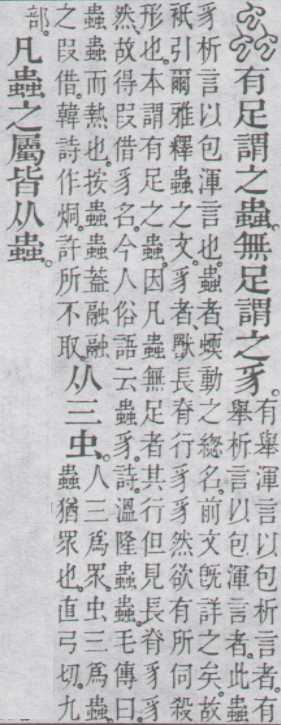 蟲有足謂之蟲。無足謂之豸。
有舉渾言以包析言者。有
舉析言以包渾言者。此蟲
豸析言以包渾言也。蟲者、蝡動之緫名。前文旣詳之矣。故
祇引爾雅釋蟲之文。豸者、獸長脊行豸豸然欲有所伺殺
形也。本謂有足之蟲。因凡蟲無足者其行但見長脊豸豸
然。故得叚借豸名。今人俗語云蟲豸。詩。溫隆蟲蟲。毛傳曰。
蟲蟲而熱也。按蟲蟲葢融融
之叚借。韓詩作烔。許所不取。
从三虫。
人三爲眾。虫三爲蟲。
蟲猶眾也。直弓切。九
部。
凡蟲之屬皆从蟲。